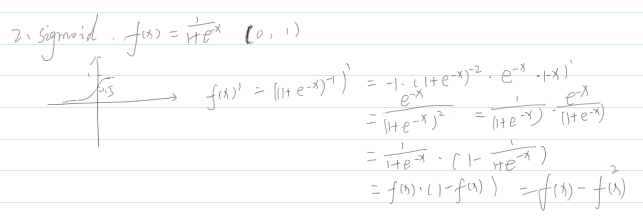 2. sigmoid. f(x) = 1/(1+e^-x) (0, 1)
0.5
f(x)' = ((1+e^-x)^-1)' = -1·(1+e^-x)^-2 · e^-x · (-x)'
= e^-x/(1+e^-x)^2 = 1/(1+e^-x) · e^-x/(1+e^-x)
= 1/(1+e^-x) · (1- 1/(1+e^-x))
= f(x)·(1-f(x)) = f(x) - f^2(x)